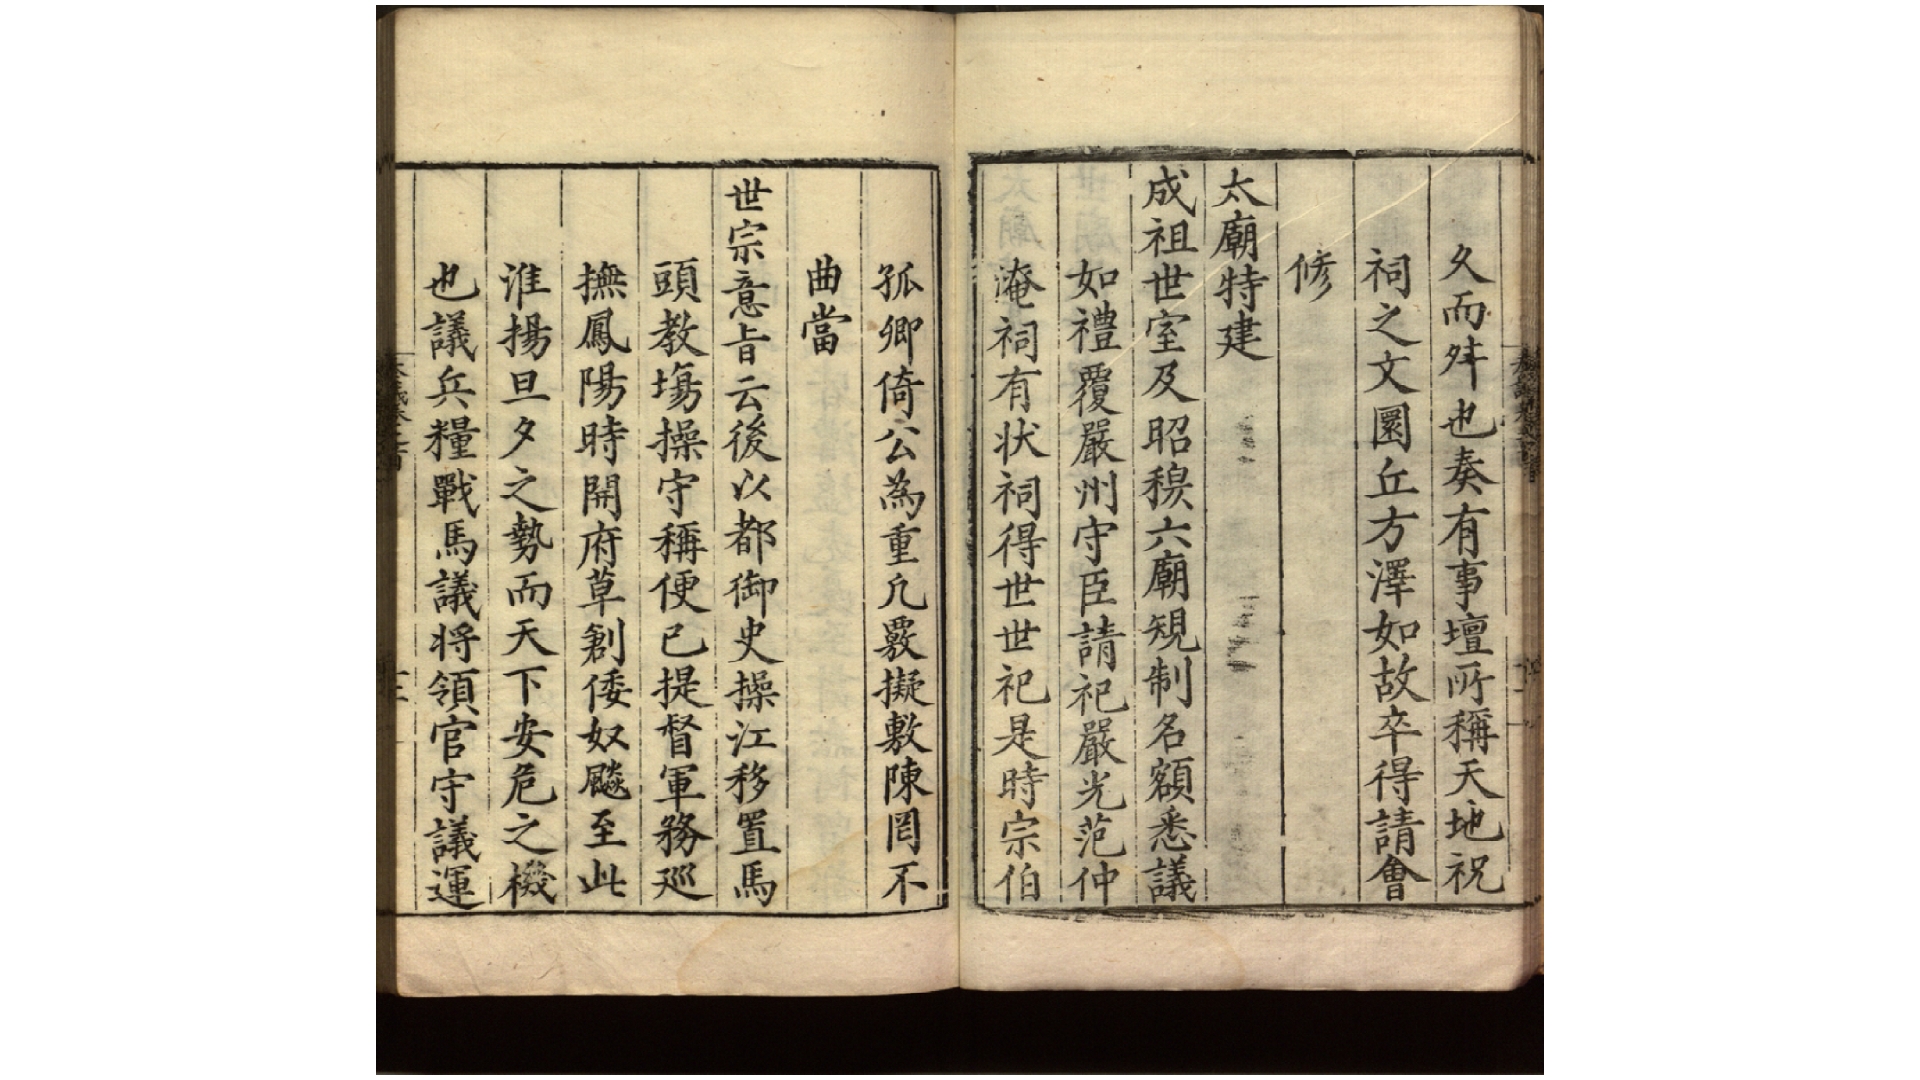 久而舛也奏有事壇所稱天地祝
祠之文圜丘方澤如故卒得請會
修
太廟特建
成祖世室及昭穆六廟規制名額悉議
如禮覆嚴州守臣請祀嚴光范仲
淹祠有状祠得世世祀是時宗伯
孤卿倚公為重凢覈擬敷陳罔不
曲當
世宗意旨云後以都御史操江移置馬
頭教塲操守稱便已提督軍務廵
撫鳳陽時開府草創倭奴飈至此
淮揚旦夕之勢而天下安危之機
也議兵糧戰馬議将領官守議運